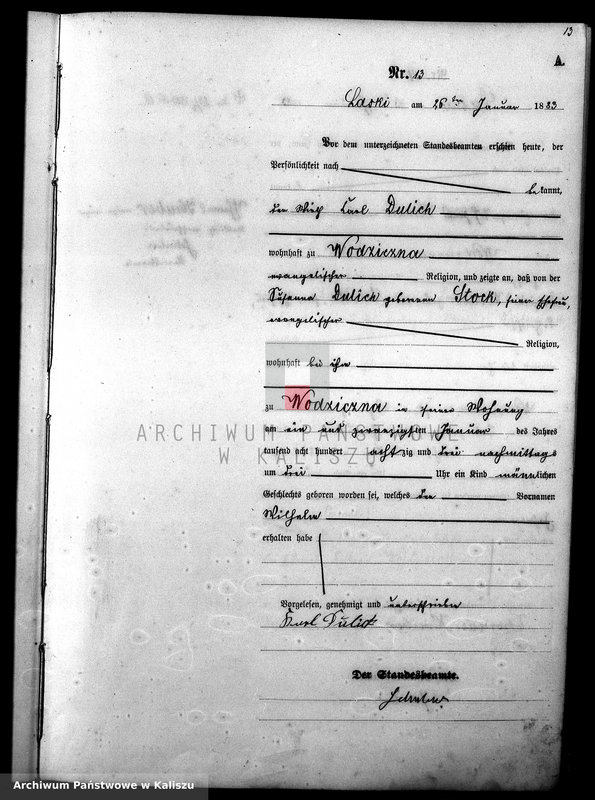 13
A.
Nr. 13
Laski am 26ten Januar 1883
Vor dem unterzeichneten Standesbeamten erschien heute, der
Persönlichkeit nach
bekannt,
der Wirth Carl Dulich
wohnhaft zu Wodziczna
evangelischer Religion, und zeigte an, daß von der
Susanna Dulich geborenen Stock, seiner Ehefrau,
evangelischer
Religion,
wohnhaft bei ihm
zu Wodziczna in seiner Wohnung
am ein und zwanzigsten Januar des Jahres
tausend acht hundert achtzig und drei nachmittags
um drei Uhr ein Kind männlichen
Geschlechts geboren worden sei, welches den Vornamen
Wilhelm
erhalten habe
Vorgelesen, genehmigt und unterschrieben
Karl Dulich
Der Standesbeamte.
ARCHIWUM PAŃSTWOWE
W KALISZU
Archiwum Państwowe w Kaliszu